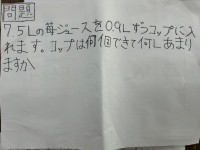 問題
7.5Lの苺ジュースを0.9Lずつコップに入
れます。コップは何個できて何Lあまり
ますか